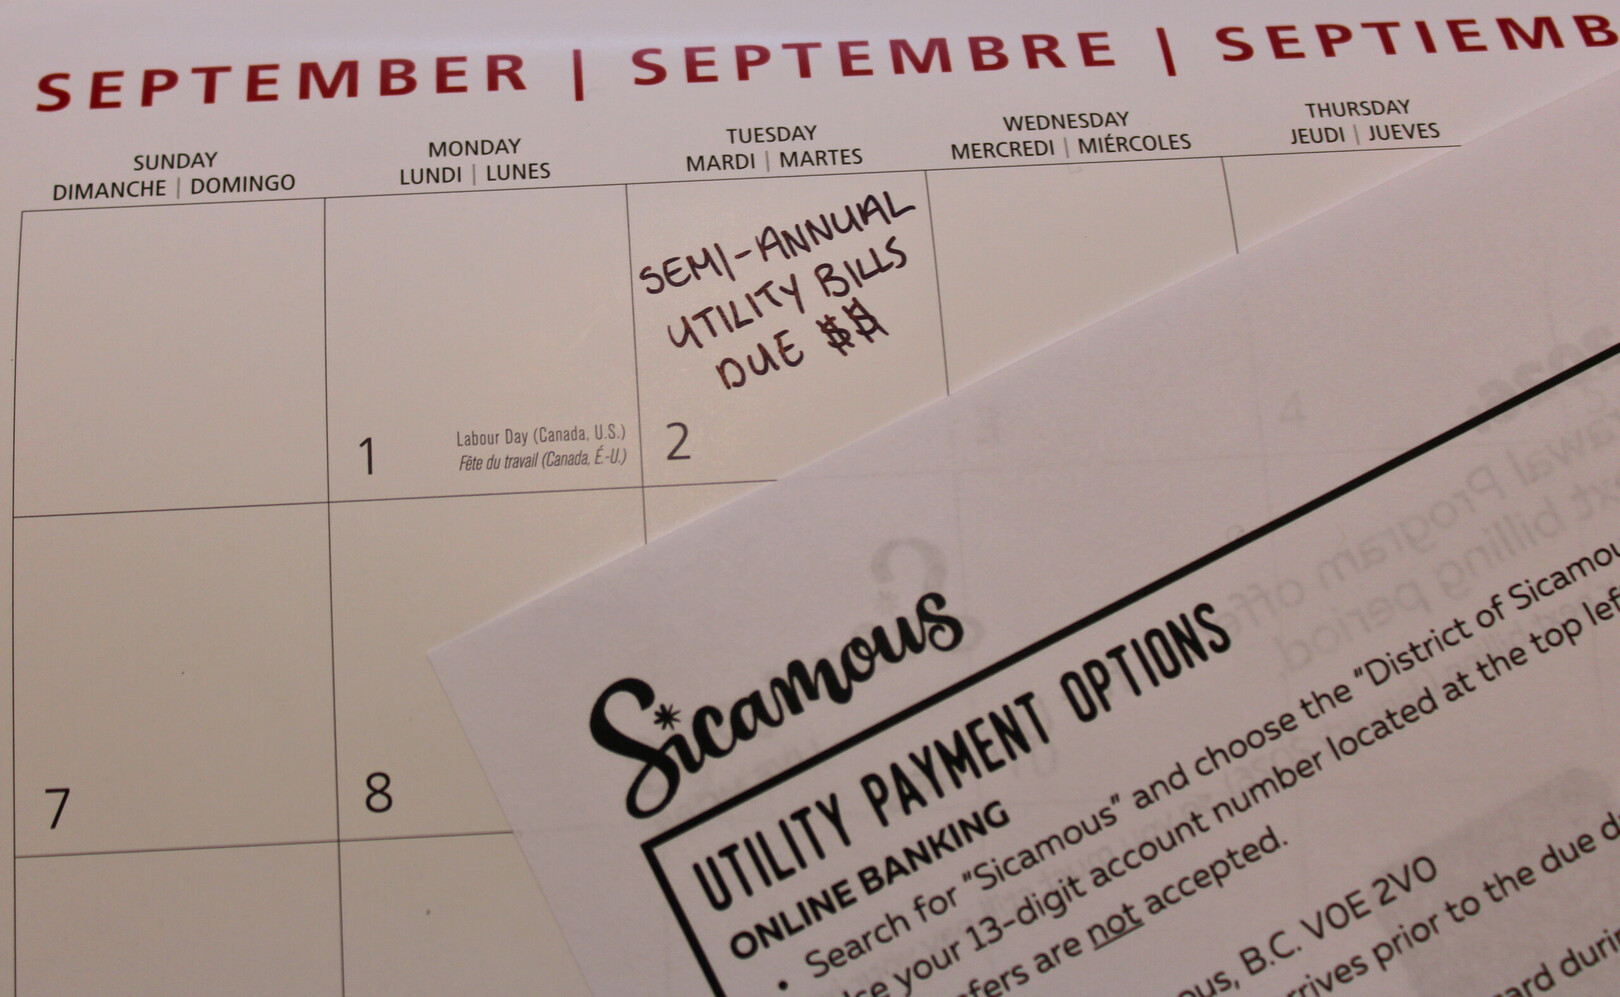 SEPTEMBER | SEPTEMBRE | SEPTIEMB
SUNDAY
DIMANCHE | DOMINGO
MONDAY
LUNDI | LUNES
TUESDAY
MARDI | MARTES
WEDNESDAY
MERCREDI | MIÉRCOLES
THURSDAY
JEUDI | JUEVES
SEMI-ANNUAL
UTILITY BILLS
DUE $$
1
Labour Day (Canada, U.S.)
Fête du travail (Canada, É.-U.)
2
4
7
8
Sicamous
UTILITY PAYMENT OPTIONS
ONLINE BANKING
• Search for "Sicamous" and choose the "District of Sicamou
your 13-digit account number located at the top lef
are not accepted.
B.C. V0E 2V0
prior to the due